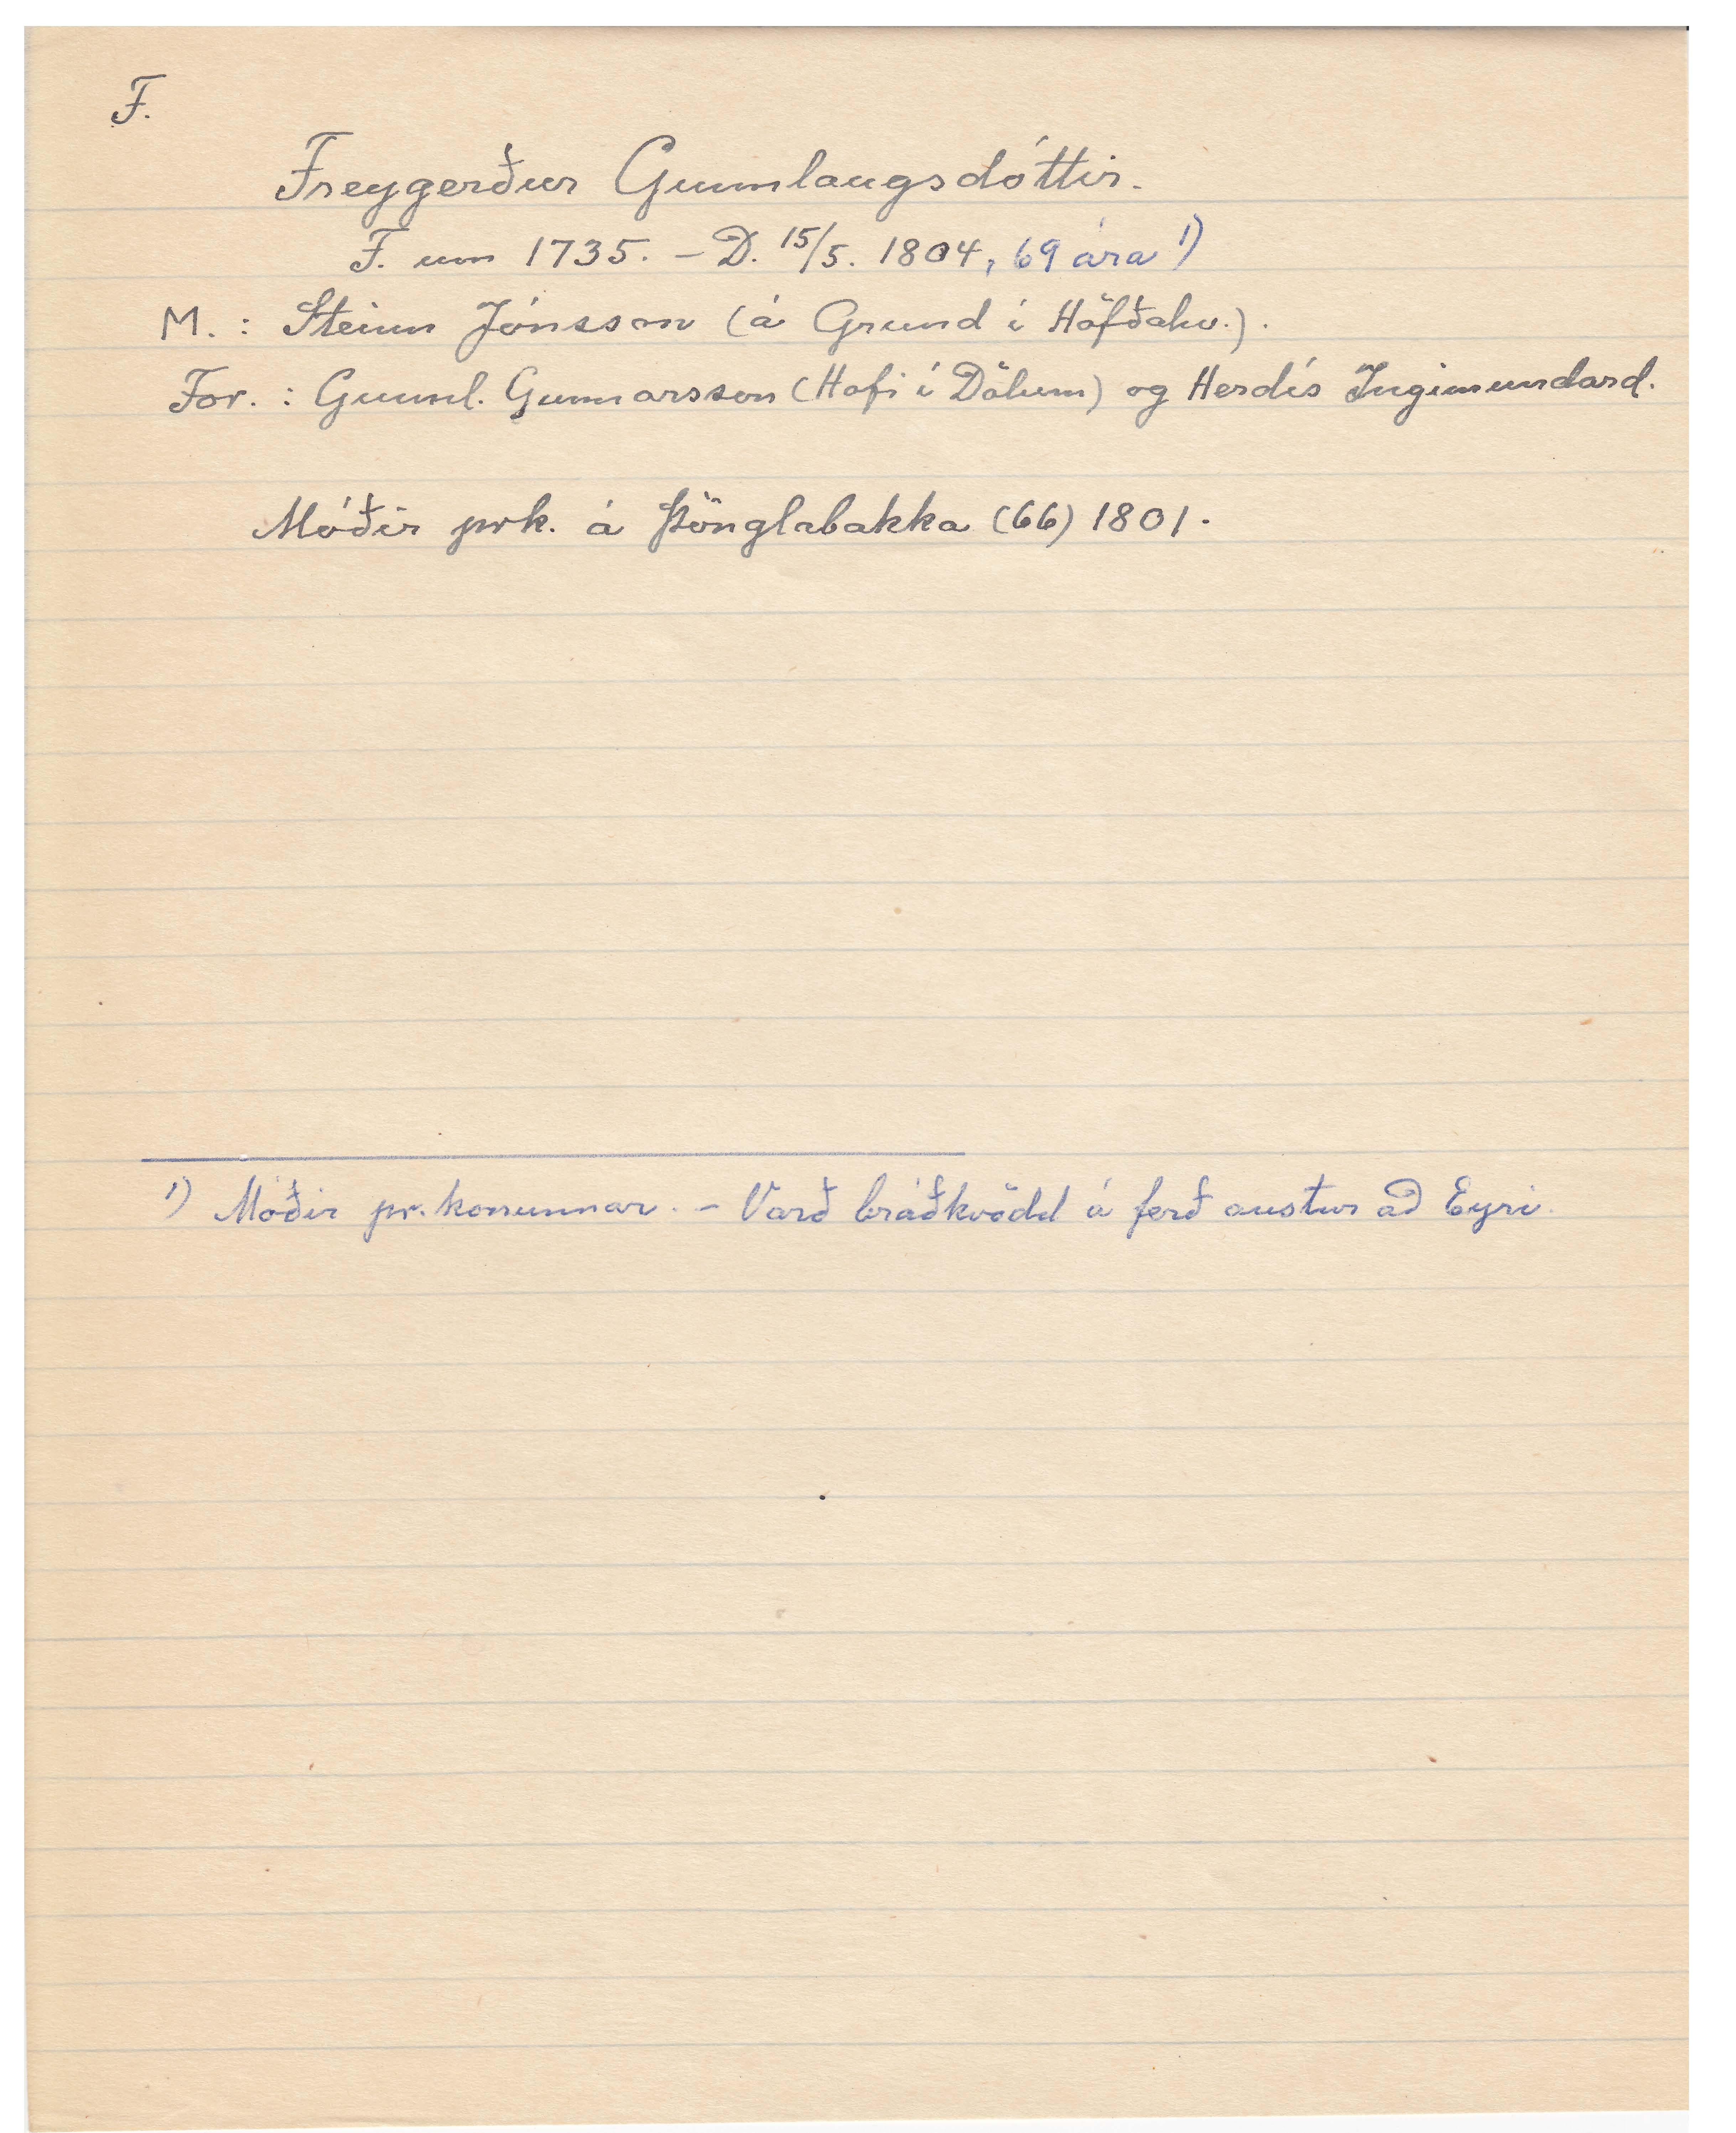 F.
Freygerður Gunnlaugsdóttir.
F. um 1735. – D. 15/5. 1804, 69 ára 1)
M. : Steinn Jónsson (á Grund í Höfðahv.).
For. : Gunnl. Gunnarsson (Hofi í Dölum) og Herdís Ingimundard.
Móðir prk. á Þönglabakka (66) 1801.
1) Móðir pr.konunnar. – Varð bráðkvödd á ferð austur að Eyri.